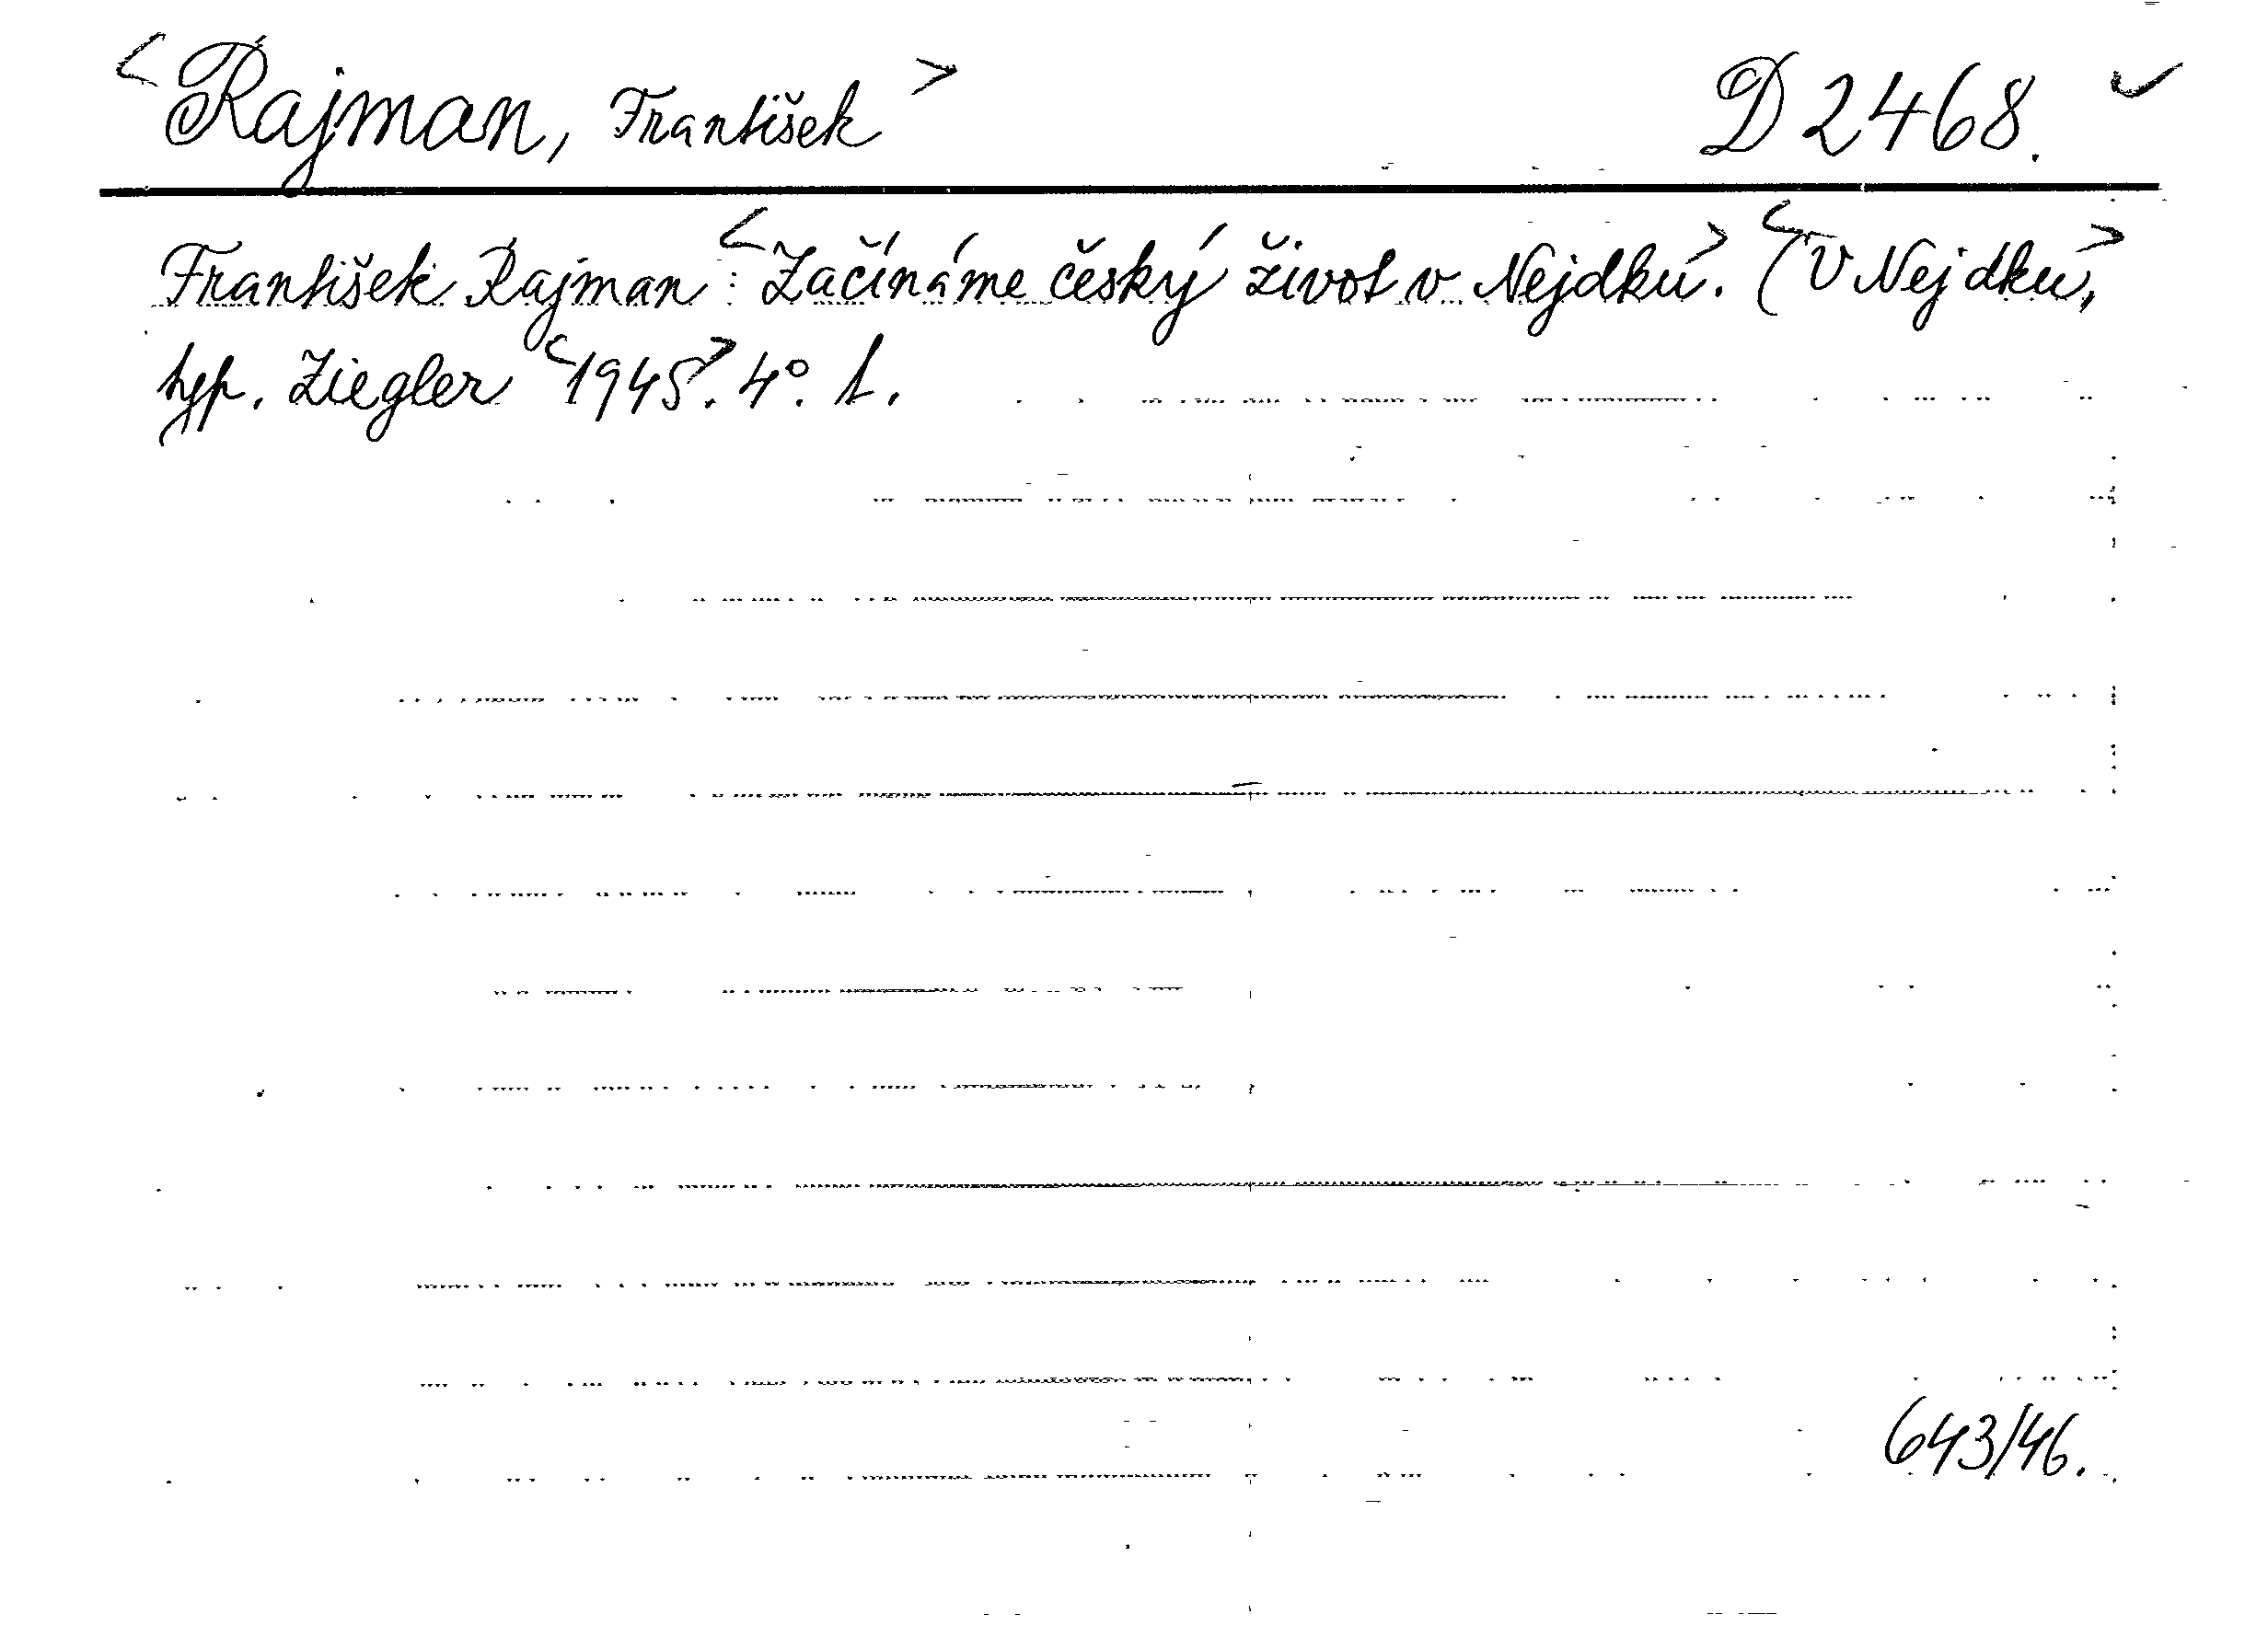 <Rajman, František> D 2468. ✓
František Rajman: <Začínáme český život v Nejdku>. <(V Nejdku>,
typ. Ziegler <1945>. 4°. l.
643/46.